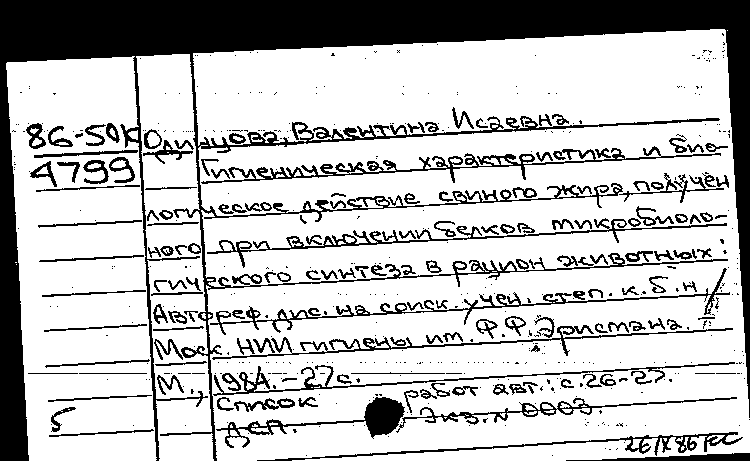 86-50К Одинцова, Валентина Исаевна.
4799 Гигиеническая характеристика и био-
логическое действие свиного жира, получен
ного при включении белков микробиоло-
гического синтеза в рацион животных:
Автореф. дис. на соиск. учен. степ. к.б.н. /
Моск. НИИ гигиены им. Ф.Ф. Эристана. –
М., 1984. – 27 с.
Список работ авт.: с. 26-27.
ДСП. Экз. N 0003.
5
26/X 86